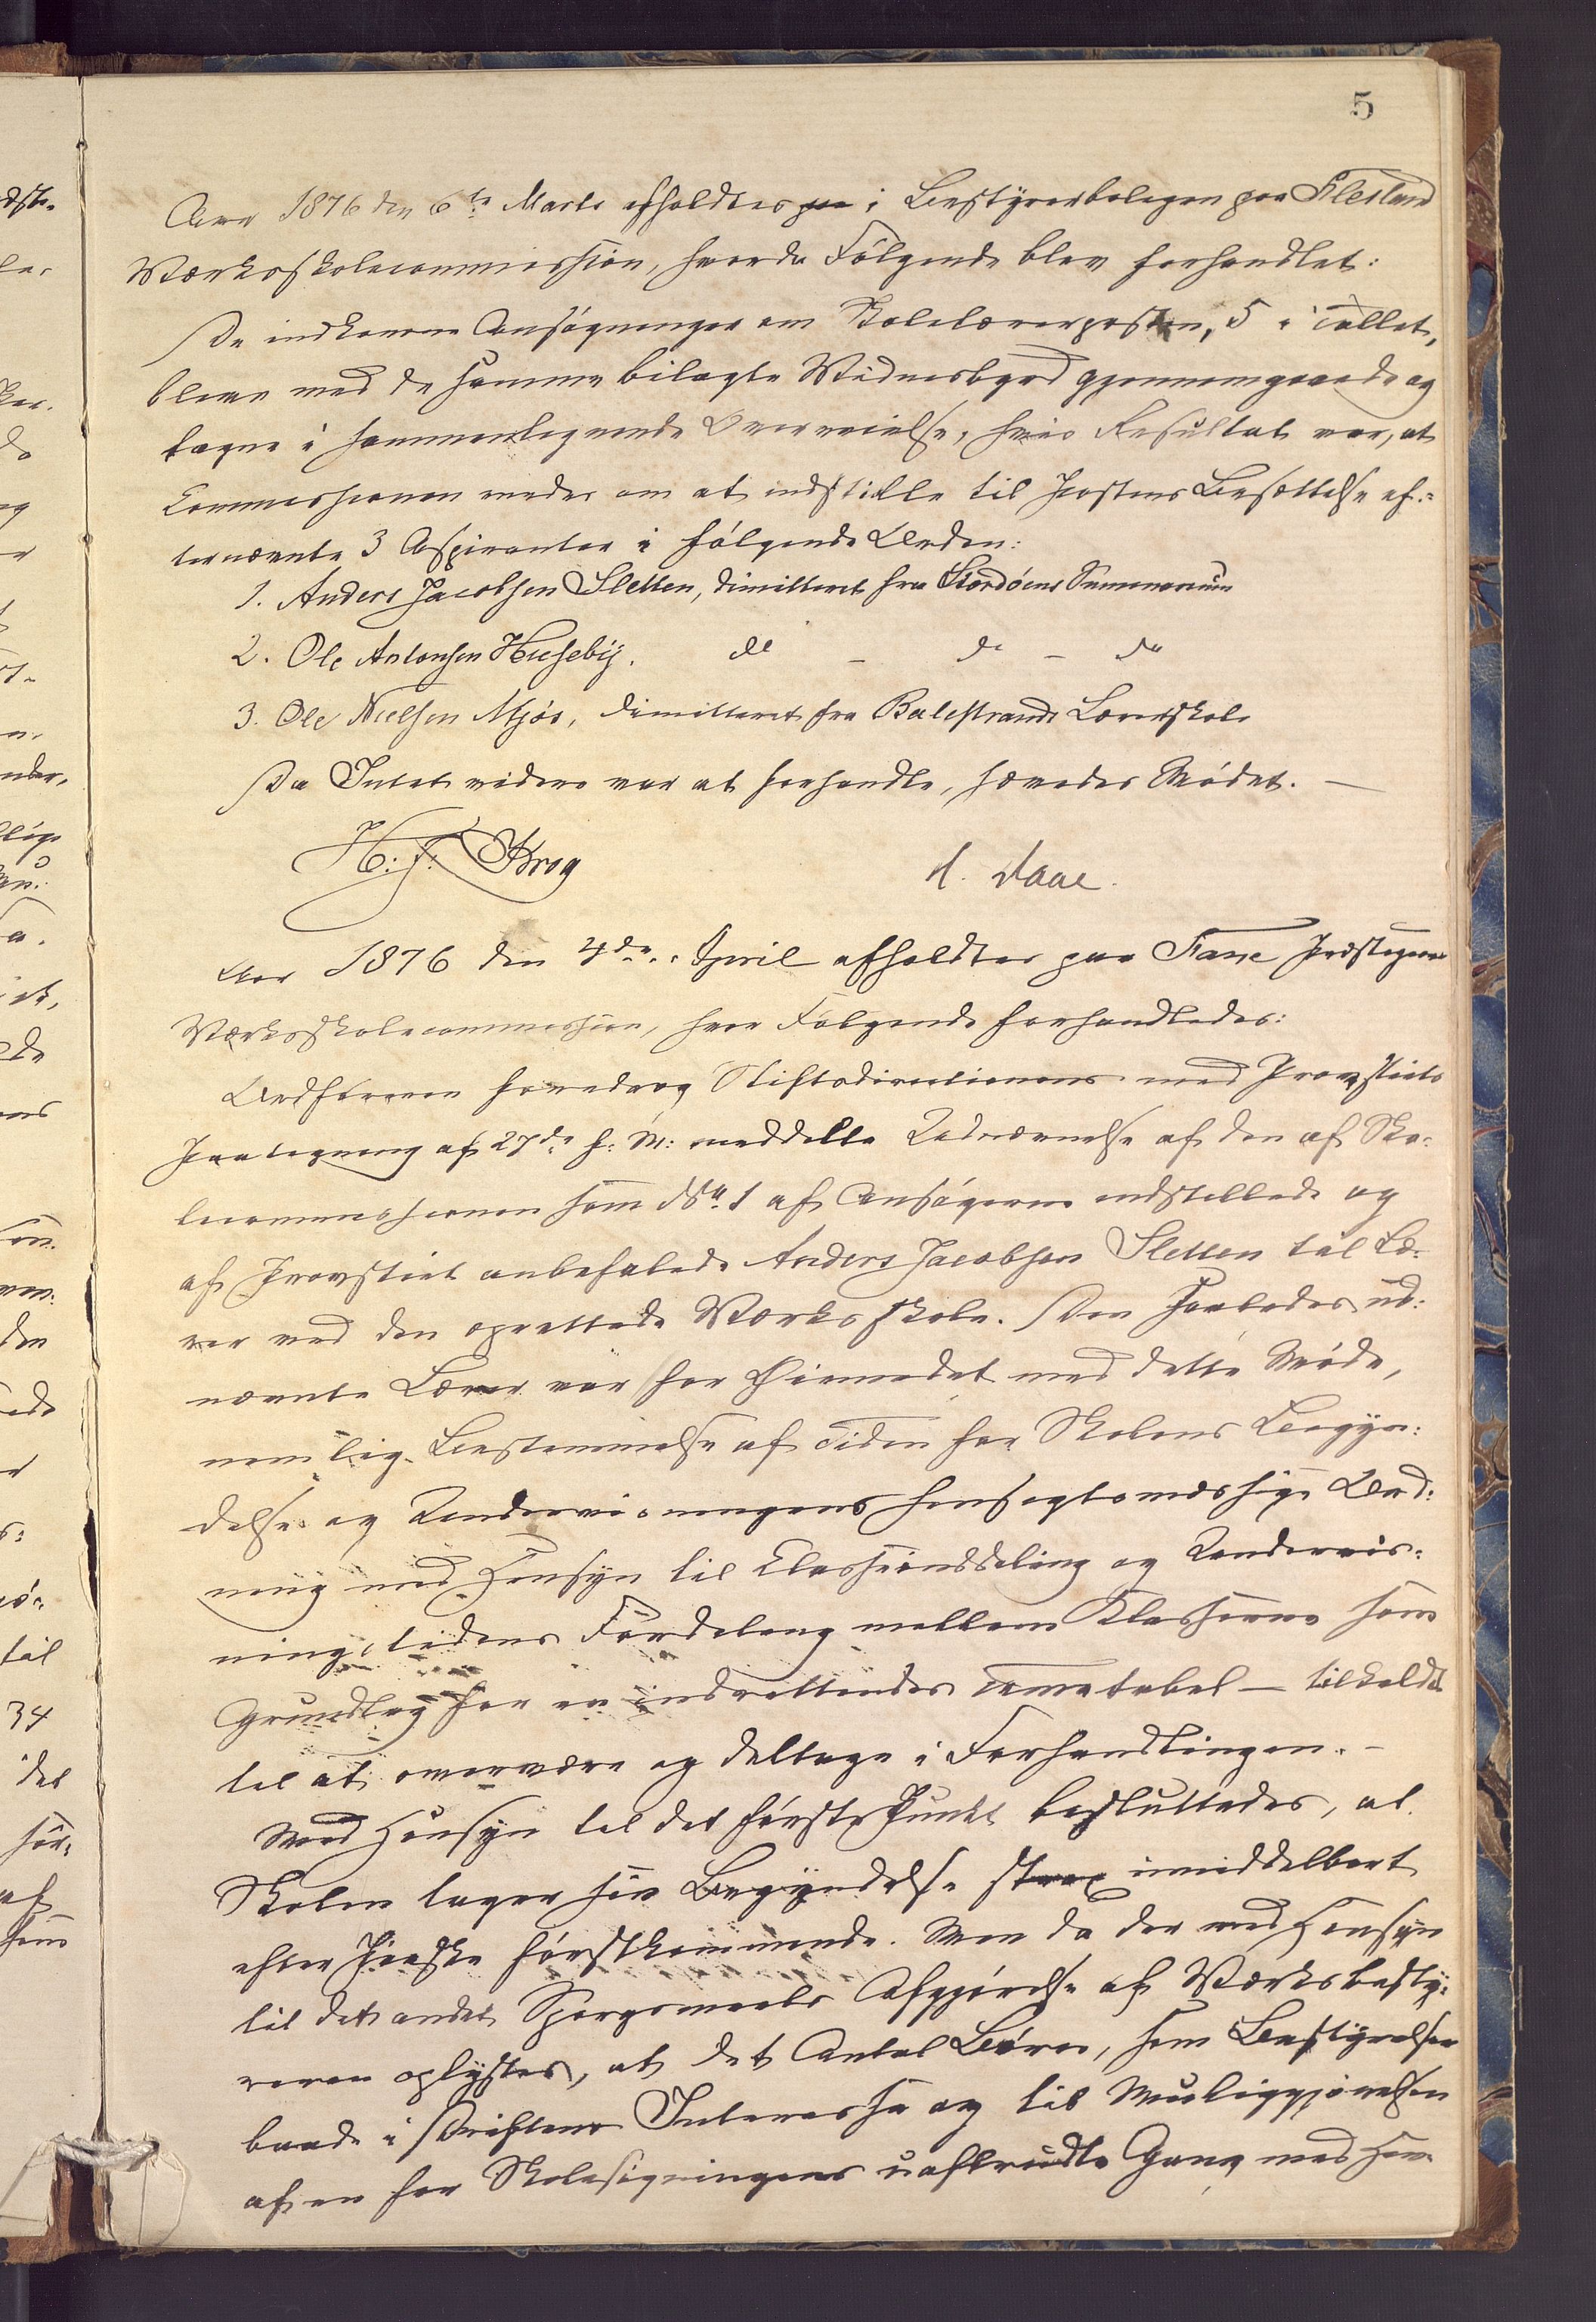 5
Aar 1876 den 6te Marts afholdtes paa i Bestyrerboligen paa Flesland
Værksskolecommission, hvorda Følgende blev forhandlet:
De indkomne Ansøgninger om Skolelærerposten, 5 i Tallet,
bleve med de samme bilagte Vidnesbyrd gjennemgaaede og
tagne i sammenlignende Overveielse, hvis Resultat var, at
Commissionen enedes om at indstille til Postens Besættelse ef-
ternævnte 3 Aspiranter i følgende Orden:
1. Anders Jacobsen Sletten, dimitteret fra Stordøens Seminarium
2. Ole Antonsen Huseby. do – do – do
3. Ole Nielsen Mjøs, dimitteret fra Balestrands Lærerskole
Da Intet videre var at forhandle, hævedes Mødet. —
H: J: Krog
A. Daae.
Aar 1876 den 4de April afholdtes paa Fane Præstegaard
Værksskolecommission, hvor Følgende forhandledes:
Ordføreren foredrog Stiftsdirectionens med Provstiets
Paategning af 27de f: M: meddelte Udnævnelse af den af Sko-
lecommissionen som No 1 af Ansøgerne indstillede og
af Provstiet anbefalede Anders Jacobsen Sletten til Læ-
rer ved den oprettede Værksskole. Den saaledes ud-
nævnte Lærer var for Øiemedet med dette Møde,
nemlig Bestemmelse af Tiden for Skolens Begyn-
delse og Undervisningens hensigtsmæssige Ord-
ning med Hensyn til Classeinddeling og Undervis-
ningstidens Fordeling mellem Klasserne som
Grundlag for en indrettendes Timetabel — tilkaldt
til at overvære og deltage i Forhandlingen. –
Med Hensyn til det første Punkt besluttedes, at
Skolen tager sin Begyndelse strax umiddelbart
efter Paaske førstkommende. Men da der med Hensyn
til det andet Spørgsmaals Afgjørelse af Værksbesty-
reren oplystes, at det Antal Børn, som Bestyrelsen
baade i Driftens Interesse og til Muliggjørelsen
af en for Skolesøgningens uafbrudte Gang med Hen-